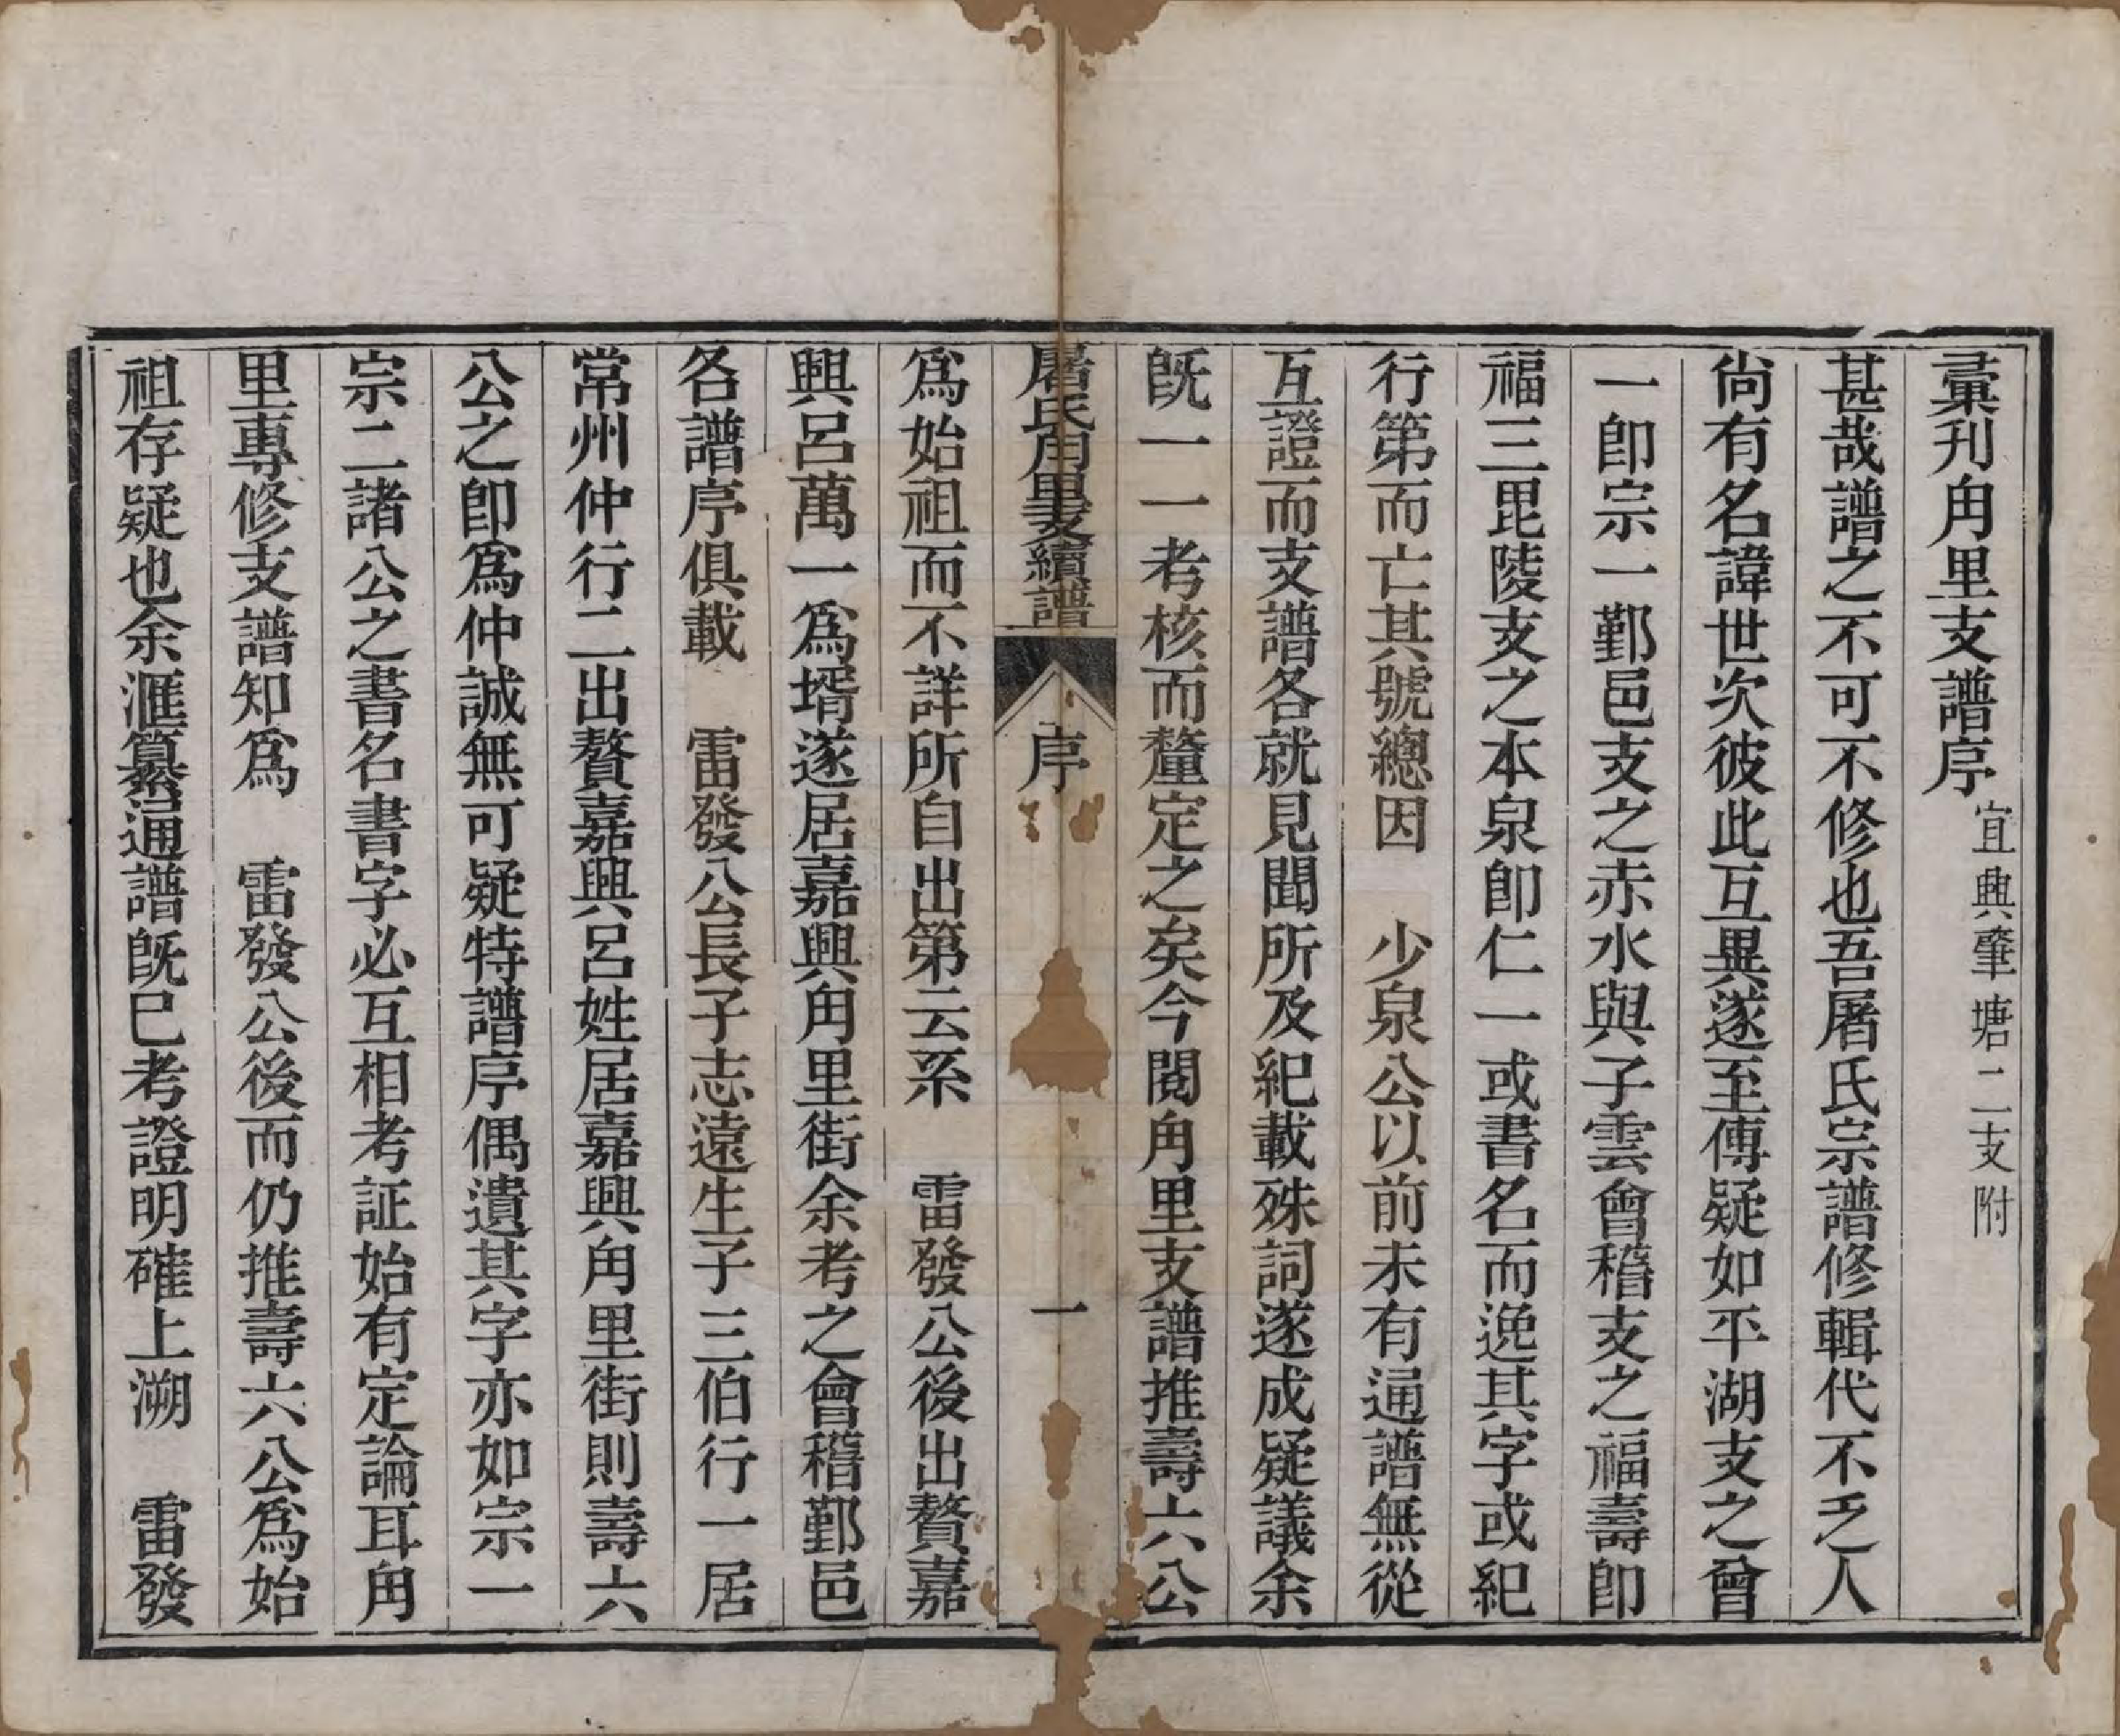 彚刋甪里支譜序 宜興肇塘二支附
甚哉譜之不可不修也吾屠氏宗譜修輯代不乏人
尙有名諱世次彼此互異遂至傳疑如平湖支之曾
一卽宗一鄞邑支之赤水與子雲會稽支之福壽卽
福三毘陵支之本泉卽仁一或書名而逸其字或紀
行第而亡其號總因　少泉公以前未有通譜無從
互證而支譜各就見聞所及紀載殊詞遂成疑議余
旣一一考核而釐定之矣今閱甪里支譜推壽六公
屠氏甪里支續譜　序　一
爲始祖而不詳所自出第云系　雷發公後出贅嘉
興呂萬一爲壻遂居嘉興甪里街余考之會稽鄞邑
各譜序俱載　雷發公長子志遠生子三伯行一居
常州仲行二出贅嘉興呂姓居嘉興甪里街則壽六
公之卽爲仲誠無可疑特譜序偶遺其字亦如宗一
宗二諸公之書名書字必互相考証始有定論耳甪
里專修支譜知爲　雷發公後而仍推壽六公爲始
祖存疑也余滙纂通譜旣巳考證明確上溯　雷發